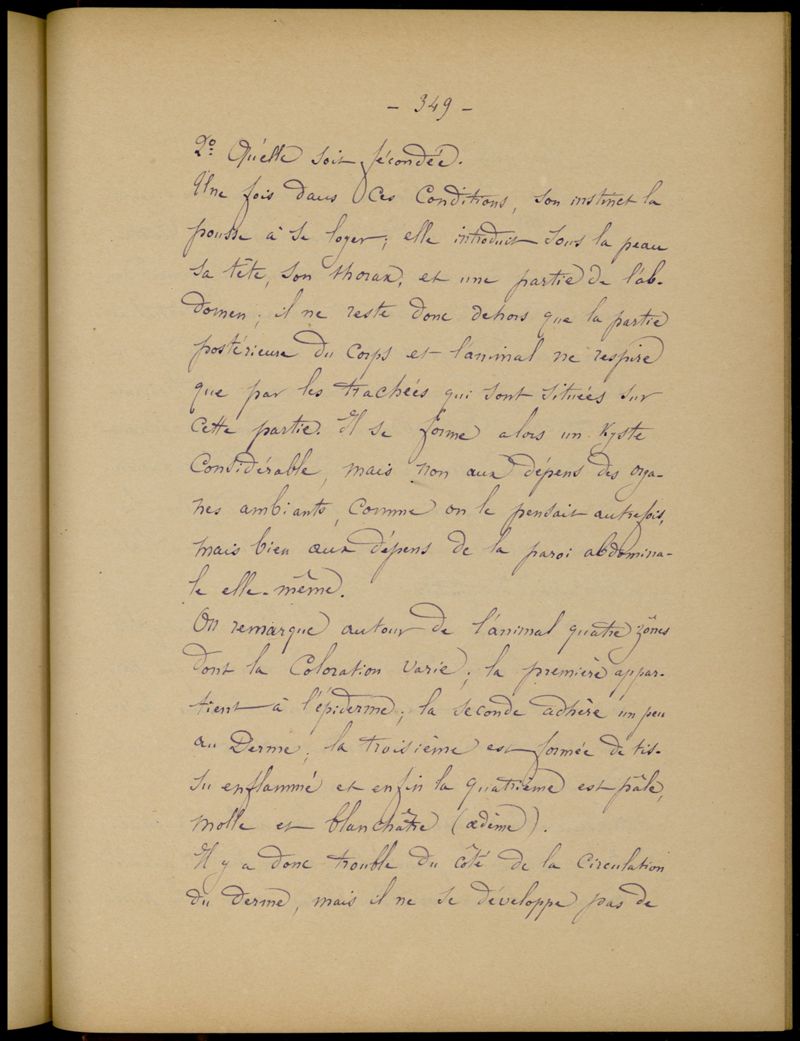 - 349 -
2º. Qu'elle soit fécondée.
Une fois dans ces conditions, son instinct la
pousse à se loger; elle introduit sous la peau
sa tête, son thorax, et une partie de l'ab-
domen; il ne reste donc dehors que la partie
postérieure du corps et l'animal ne respire
que par les trachées qui sont situées sur
cette partie. Il se forme alors un Kyste
considérable, mais non aux dépens des orga-
nes ambiants, comme on le pensait autrefois,
mais bien aux dépens de la paroi abdomina-
le elle-même.
On remarque autour de l'animal quatre zônes
dont la coloration varie; la première appar-
tient à l'épiderme; la seconde adhère un peu
au Derme; la troisième est formée de tis-
su enflammé et enfin la quatrième est pâle,
molle et blanchâtre (œdème).
Il y a donc trouble du côté de la circulation
du derme, mais il ne se développe pas de